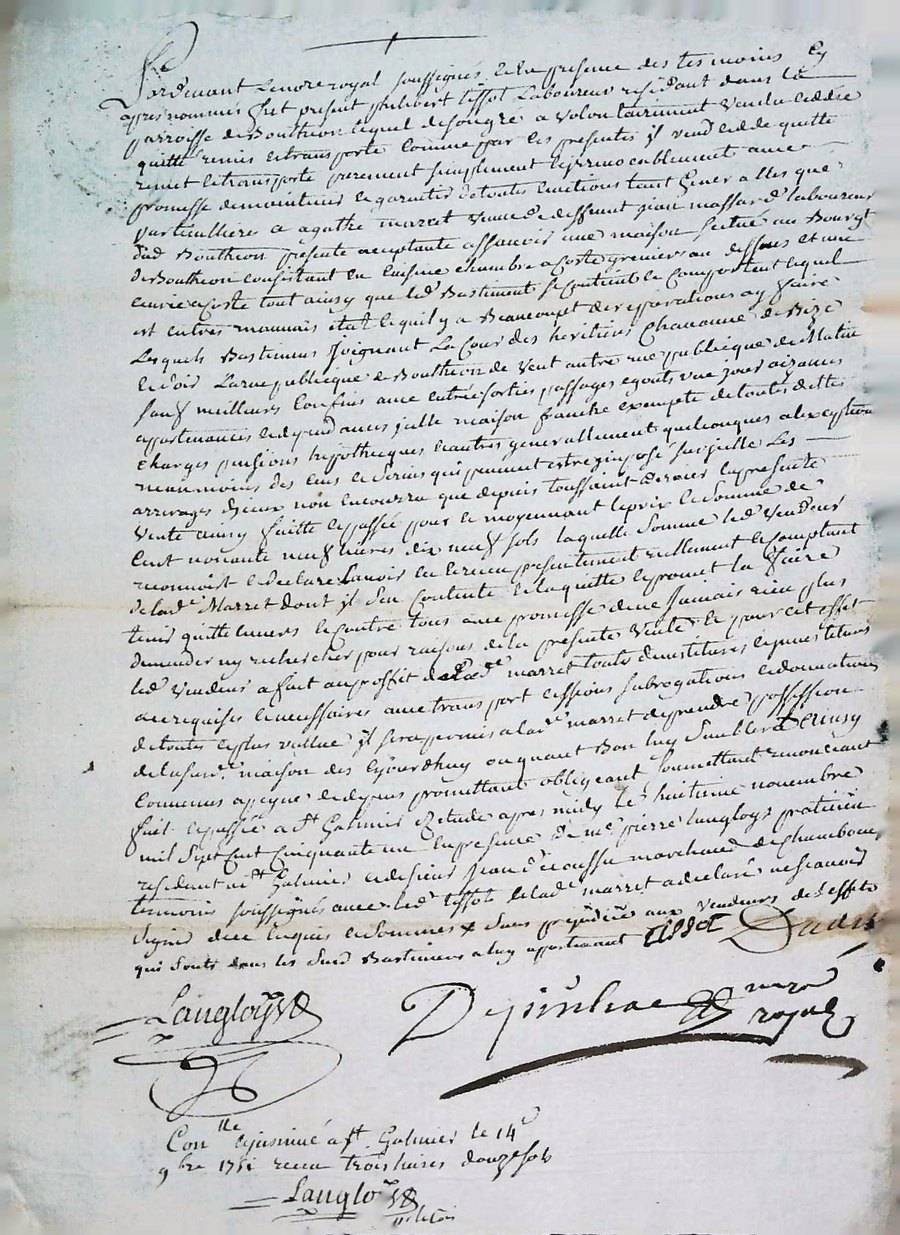 Pardevant Le nore royal soussigné et En presence des tesmoins Cy
apres nommés fut present philibert tissot Laboureur residant dans la
parroisse de Bouthéon lequel de son gré a volontairement vendu ceddé
quitté remis et transporté comme par ces presentes il vend cedde quitte
remet et transporte purement simplement et irrevocablement avec
promesse de maintenir et garantir de toutes evictions tant generalles que
particullieres a agathe marret veuve de deffunt jean massard laboureur
dud Bouthéon presente acceptante assavoir une maison situé au Bourgt
de Bouthéon consistant en cuisine chambre a coste greniers au dessus et une
ecurie a coste tout ainsy que led Bastiment se contient et comporte et lequel
est en tres mauvais etat et quil y a Beaucoupt de repparations a y faire
Lesquels Bastiments joignant La Cour des heritiers Chavanne de Bize
et soir La rue publique de Bouthéon de vent autre rue publique de matin
sauf meilleurs confins avec entrées sorties passages egouts vue jour aizances
appartenances et dependances icelle maison franche exempte de toutes dettes
charges pensions hypotheques et autres generallement quelconques a lexception
neanmoins des cens et servis qui peuvent estre imposé sur icelle Les
arrerages diceux non encourru que depuis toussaint dernier la presente
vente ainsy faitte et passée pour et moyennant le prix et somme de
Cent nonante neuf livres dix neuf sols laquelle somme led vendeur
reconnoit et declare Lavoir eu et receu presentement reellement et comptant
de lad Marret dont il s'en contente et la quitte et promet la faire
tenir quitte envers et contre tous avec promesse de ne jamais rien plus
demander ny rechercher pour raisons de la presente vente et pour cet effet
led vendeur a fait au proffit de Lad marret toutes demistitures et investitures
au requises et necessaires avec transport cessions subrogations et donnations
de toutes et plus vallue il sera permis a lad marret de prendre possession
de la susd maison des aujourdhuy ou quant Bon luy semblera Et Ainsy
Convenus a peyne de depens promettant obligeant soumettant renonceant
fait et passé a St Galmier Etude apres midy Le huitieme novembre
mil Sept Cent Cinquante un En presence de me pierre Langloys praticien
residant a St Galmier et de sieur jean marchand de Chambeou
temoins soussignés avec led tissot et lad marret a declaré ne scavoir
signer de ce enquis et sommés & sans prejudice aux vendeurs des effets
qui sont dans les susd Bastiments a luy appartenant tissot
Langloys
royal
Con lle et insinué a St Galmier le 14e
9bre 1751 receu trois livres douze sols
Langloys